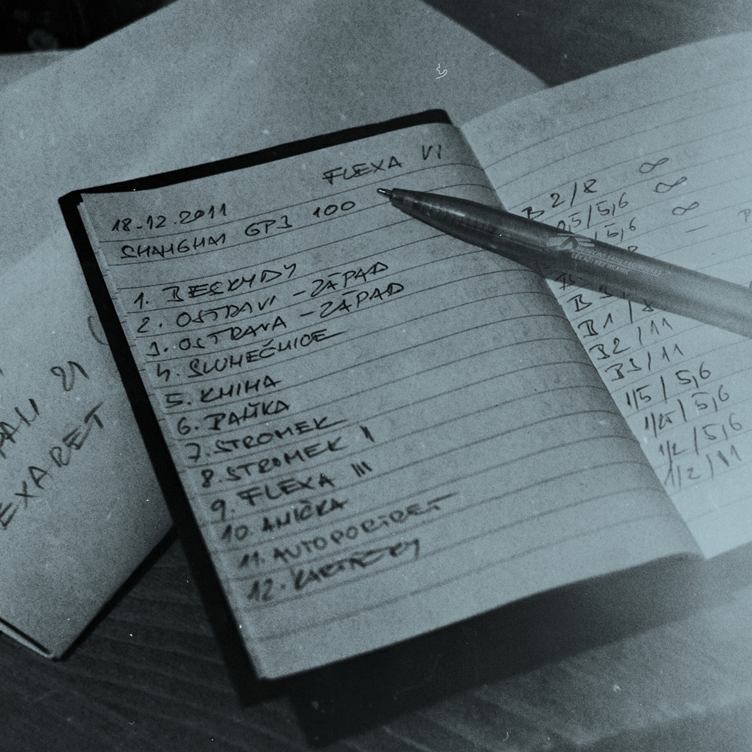 FLEXA VI
18.12.2011
SHANGHAI GP3 100
1. BESKYDY
2. OSTRAVA - ZÁPAD
3. OSTRAVA - ZÁPAD
4. SLUNEČNICE
5. KNIHA
6. PAŤKA
7. STROMEK
8. STROMEK II
9. FLEXA III
10. ANIČKA
11. AUTOPORTRET
12. KARTIČKY
B 2/8 ∞
0,5/5,6 ∞
/5,6 ∞
B1/
B2/11
B3/11
1/5/5,6
/5,6
1/2/5,6
1/2/11
21
EXARET